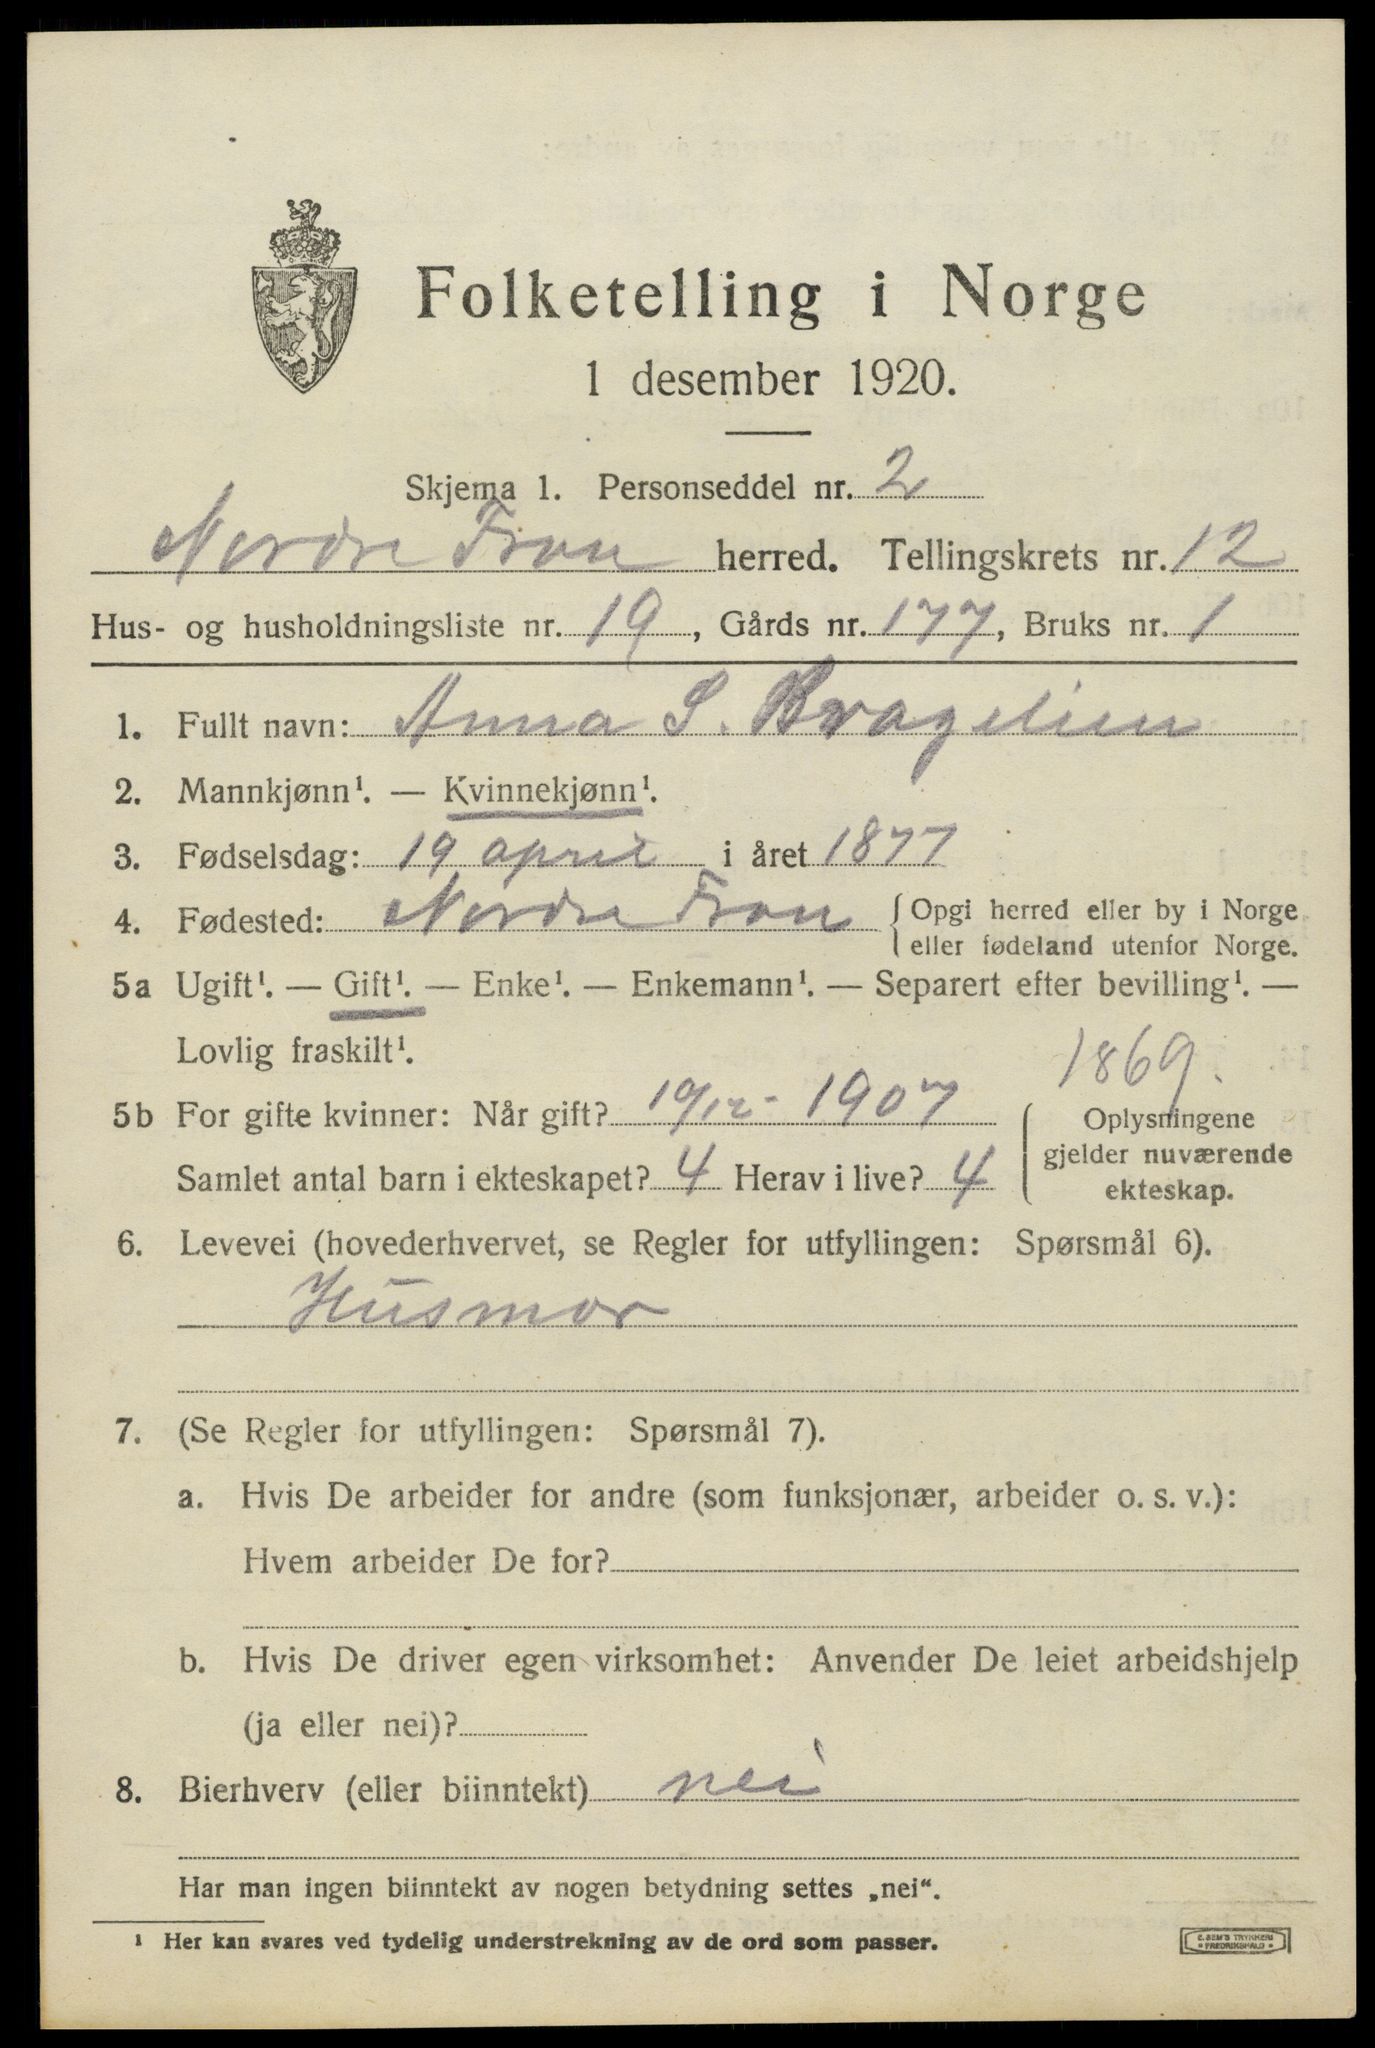 Folketelling i Norge
1 desember 1920.
Skjema 1. Personseddel nr. 2
Nordre Fron herred. Tellingskrets nr. 12
Hus- og husholdningsliste nr. 19, Gårds nr. 177, Bruks nr. 1
1. Fullt navn: Anna S. Bragelien
2. Mannkjønn¹. — Kvinnekjønn¹.
3. Fødselsdag: 19 april i året 1877
4. Fødested: Nordre Fron { Opgi herred eller by i Norge
eller fødeland utenfor Norge.
5a Ugift¹. — Gift¹. — Enke¹. — Enkemann¹. — Separert efter bevilling¹. —
Lovlig fraskilt¹.
1869.
5b For gifte kvinner: Når gift? 19/12- 1907
Samlet antal barn i ekteskapet? 4 Herav i live? 4
Oplysningene
gjelder nuværende
ekteskap.
6. Levevei (hovederhvervet, se Regler for utfyllingen: Spørsmål 6).
Husmor
7. (Se Regler for utfyllingen: Spørsmål 7).
a. Hvis De arbeider for andre (som funksjonær, arbeider o. s. v.):
Hvem arbeider De for?
b. Hvis De driver egen virksomhet: Anvender De leiet arbeidshjelp
(ja eller nei)?
8. Bierhverv (eller biinntekt) nei
Har man ingen biinntekt av nogen betydning settes „nei“.
¹ Her kan svares ved tydelig understrekning av de ord som passer.
C. SEM'S TRYKKERI
• FREDRIKSHALD •